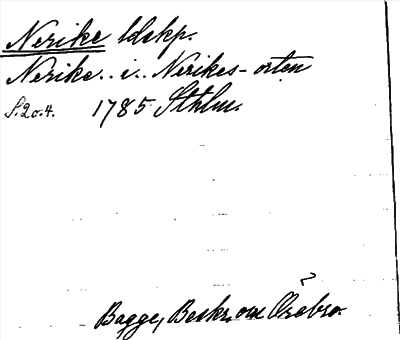 Nerike ldskp.
Nerike..i..Nerikes-orten
S. 20.4. 1785 Sthlm.
Bagge, Beskr. om Örebro.